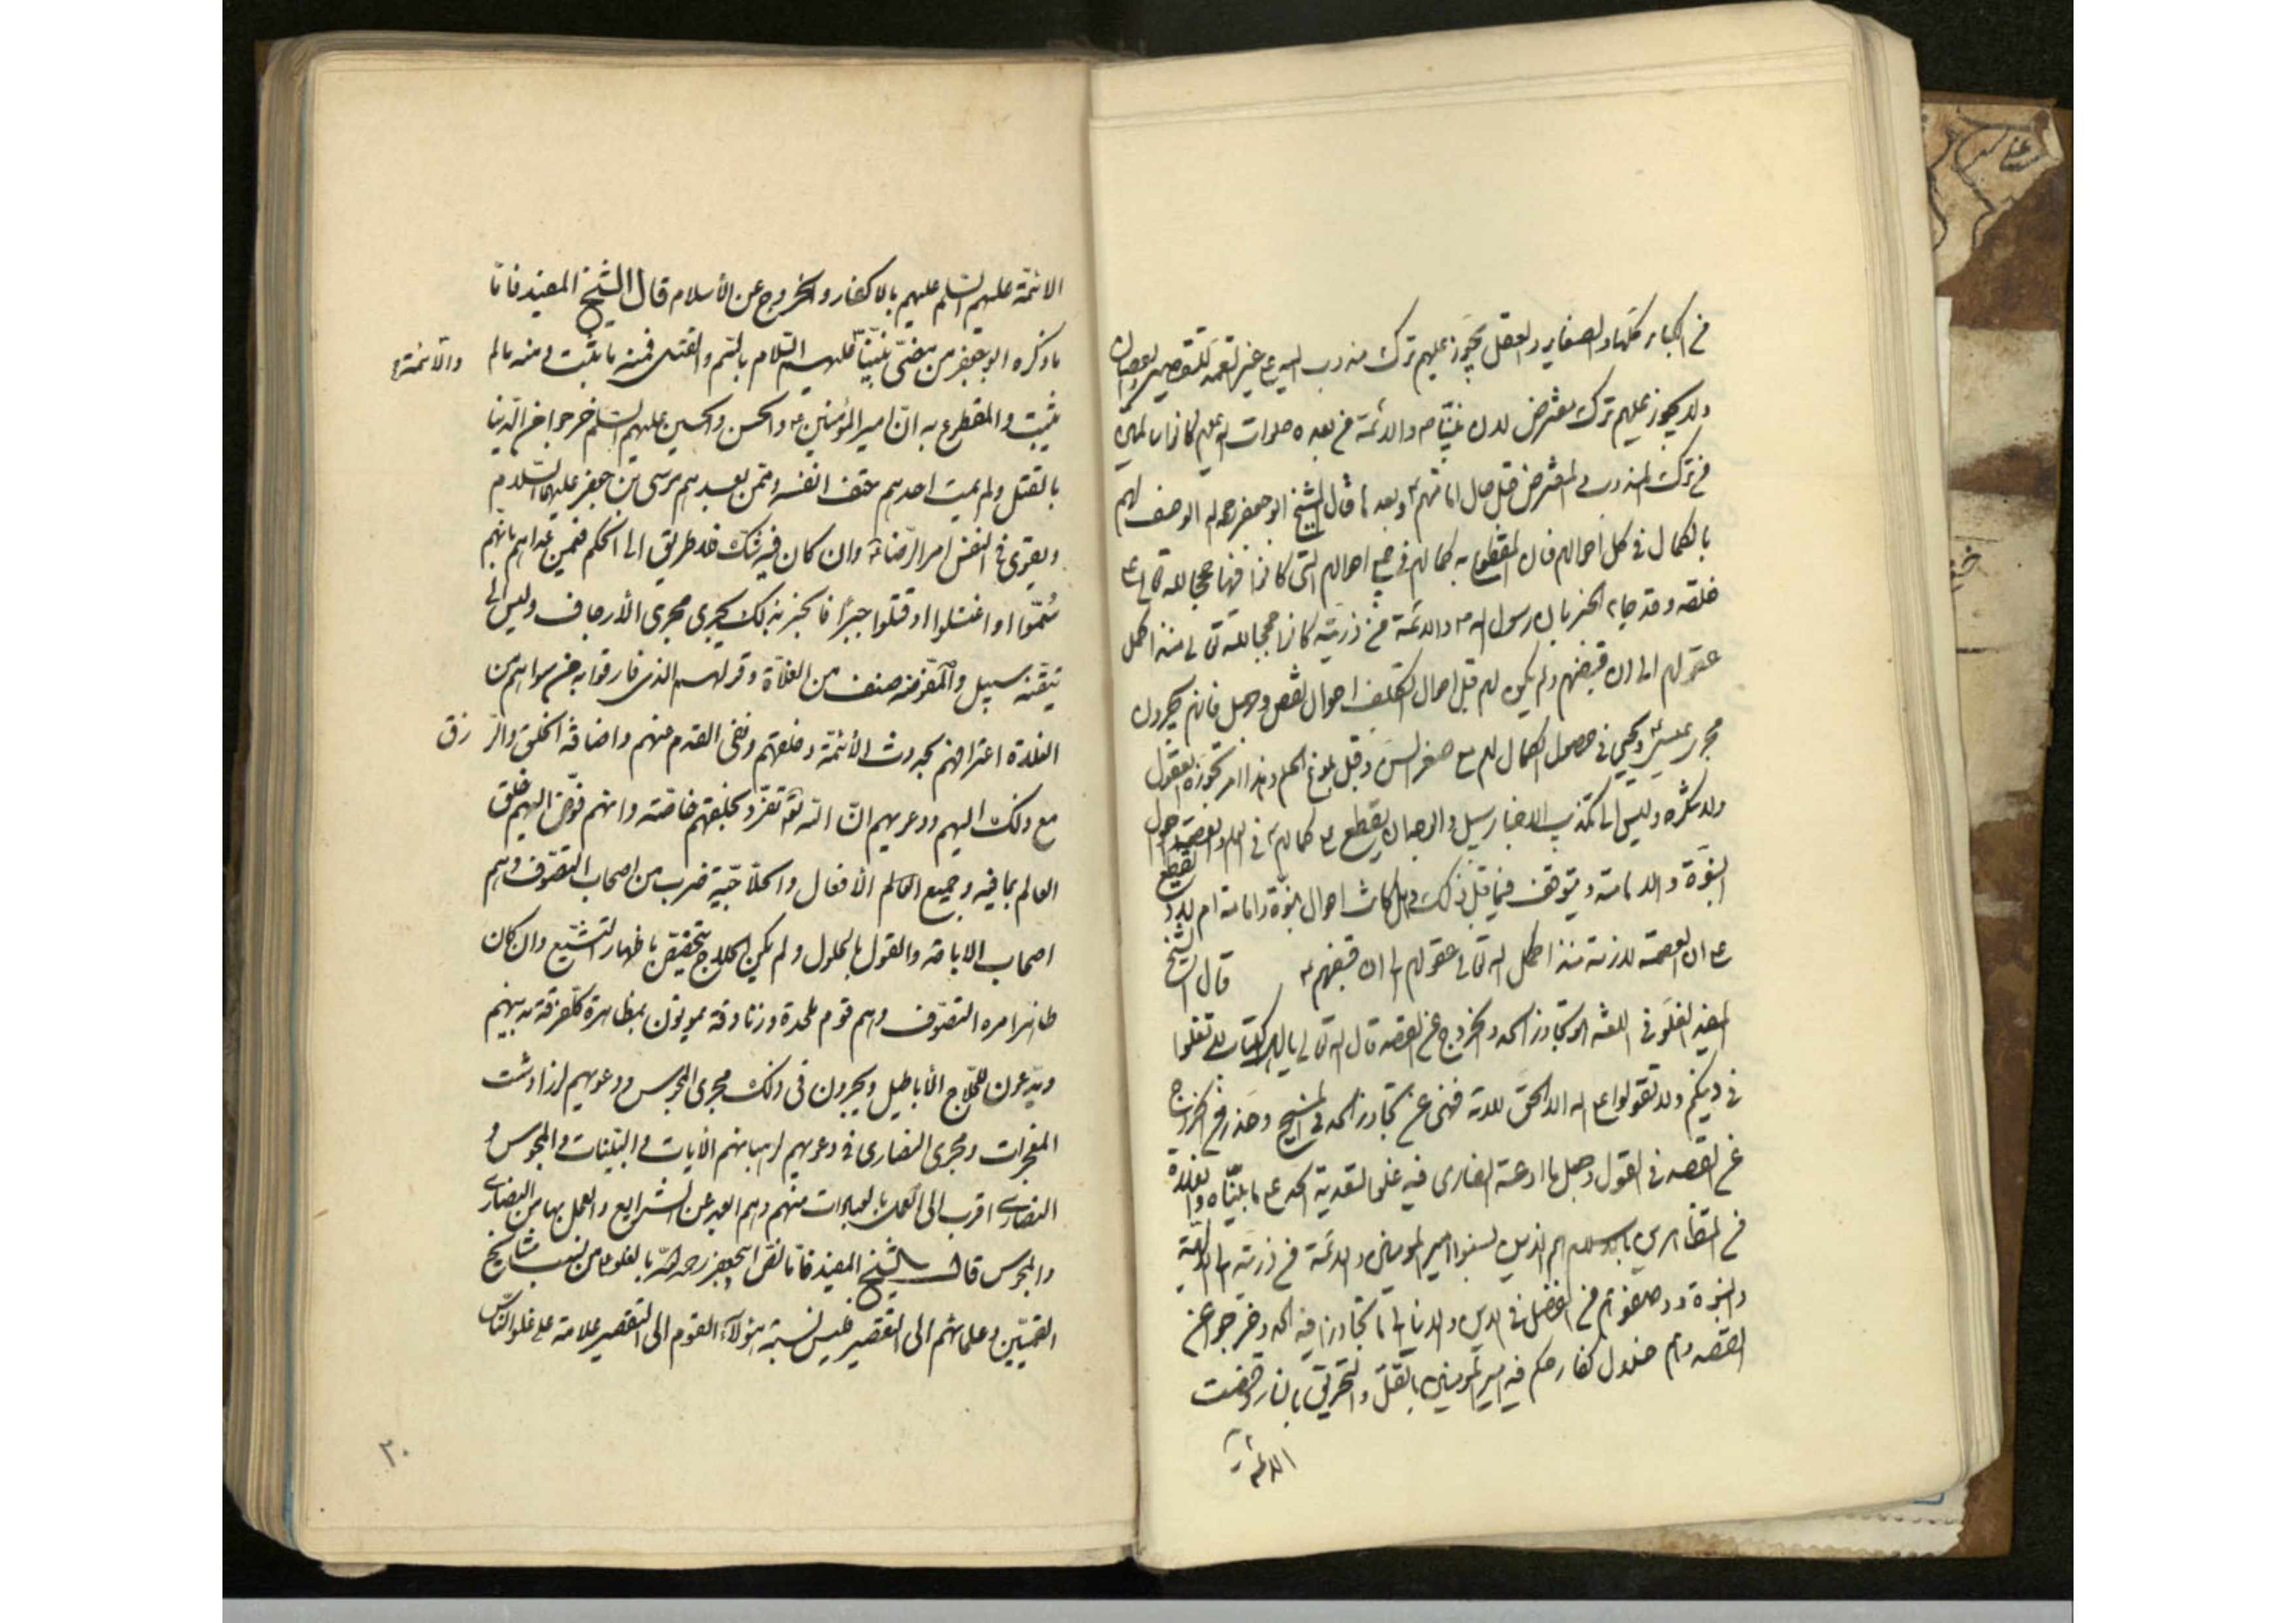 من الكبائر كلها والصغاير والعقل يجوز عليهم ترك مندوب اليه على غير التعمد للتقصير والعصيان
ولا يجوز عليهم ترك مفترض الا ان نبينا ص والائمة من بعده صلوات الله عليهم كانوا سالمين
من ترك المندوب والمفترض قبل حال امامتهم وبعدها قال الشيخ ابو جعفر رحمه الله الوصف لهم
بالكمال في كل احوالهم فان المقطوع به كمالهم في جميع احوالهم التي كانوا فيها حججا لله تعالى على
خلقه وقد جاء الخبر بان رسول الله ص والائمة من ذريته كانوا حججا لله تعالى منذ اكمل
عقولهم الى ان قبضهم ولم يكن لهم قبل احوال التكليف احوال نقص وجهل فانهم يجرون
مجرى عيسى ويحيى في حصول الكمال لهم مع صغر السن وقبل بلوغ الحلم وهذا امر تجوزه العقول
ولا تنكره وليس الى تكذيب الاخبار سبيل والوجه ان يقطع على كمالهم في العلم والعصمة في احوال
النبوة والامامة ويتوقف فيما قبل ذلك وهل كانت احوال نبوة وامامة ام لا ويقطع
على ان العصمة لازمة منذ اكمل الله تعالى عقولهم الى ان قبضهم قال الشيخ
المفيد الغلو في اللغة هو تجاوز الحد والخروج عن القصد قال الله تعالى يا اهل الكتاب لا تغلوا
في دينكم ولا تقولوا على الله الا الحق الاية فنهى عن تجاوز الحد في المسيح وحذر من الخروج
عن القصد في القول وجعل ما ادعته النصارى فيه غلوا لتعديه الحد على ما بيناه والغلاة
من المتظاهرين بالاسلام هم الذين نسبوا امير المومنين والائمة من ذريته الى الالهية
والنبوة ووصفوهم من الفضل في الدين والدنيا الى ما تجاوزوا فيه الحد وخرجوا عن
القصد وهم ضلال كفار حكم فيهم امير المومنين بالقتل والتحريق بالنار وقضت
الائمة
الائمة عليهم السلم عليهم بالاكفار والخروج عن الأسلام قال الشيخ المفيد فاما
ما ذكره ابو جعفر من مضى نبينا عليهم السلام بالسم والقتل فمنه ما يثبت ومنه ما لم
والائمة ع
يثبت والمقطوع به ان امير المؤمنين ع والحسن والحسين عليهم السلم خرجوا من الدنيا
بالقتل ولم يمت احدهم حتف انفسه وممن بعدهم موسى بن جعفر عليهما السلام
ويقوى في النفس امر الرضا ع وان كان فيه شك فلا طريق الى الحكم فيمن عداهم بانهم
سموا او اغتيلوا او قتلوا جبرا فالخبر بذلك يجرى مجرى الأرجاف وليس الى
تيقنه سبيل والمفوضه صنف من الغلاة وقولهم الذى فارقوا به من سواهم من
الغلاة اعترافهم بحدوث الأئمة وخلقهم ونفى القدم عنهم واضافة الخلق والرزق
مع ذلك اليهم ودعويهم ان الله تعالى تفرد بخلقهم خاصة وانهم فوض اليهم خلق
العالم بما فيه وجميع العالم الأفعال والحلاجية ضرب من اصحاب التصوف وهم
اصحاب الاباحة والقول بالحلول ولم يكن الحلاج يتخصص باظهار التشيع وان كان
ظاهر امره التصوف وهم قوم ملحدة وزنادقة يموهون بمظاهرة كل فرقة بدينهم
ويدعون للحلاج الأباطيل ويجرون فى ذلك مجرى المجوس ودعويهم لزرادشت
المعجزات ومجرى النصارى في دعويهم لرهبانهم الايات والبينات والمجوس و
النصارى اقرب الى العمل بالعبادات منهم وهم ابعد عن الشرايع والعمل بها من النصارى
والمجوس قال الشيخ المفيد فاما نص ابى جعفر رحمه الله بالغلو على من نسب مشايخ
القميين وعلمائهم الى التقصير فليس نسبة هؤلاء القوم الى التقصير علامة على غلو الناس
٢٠